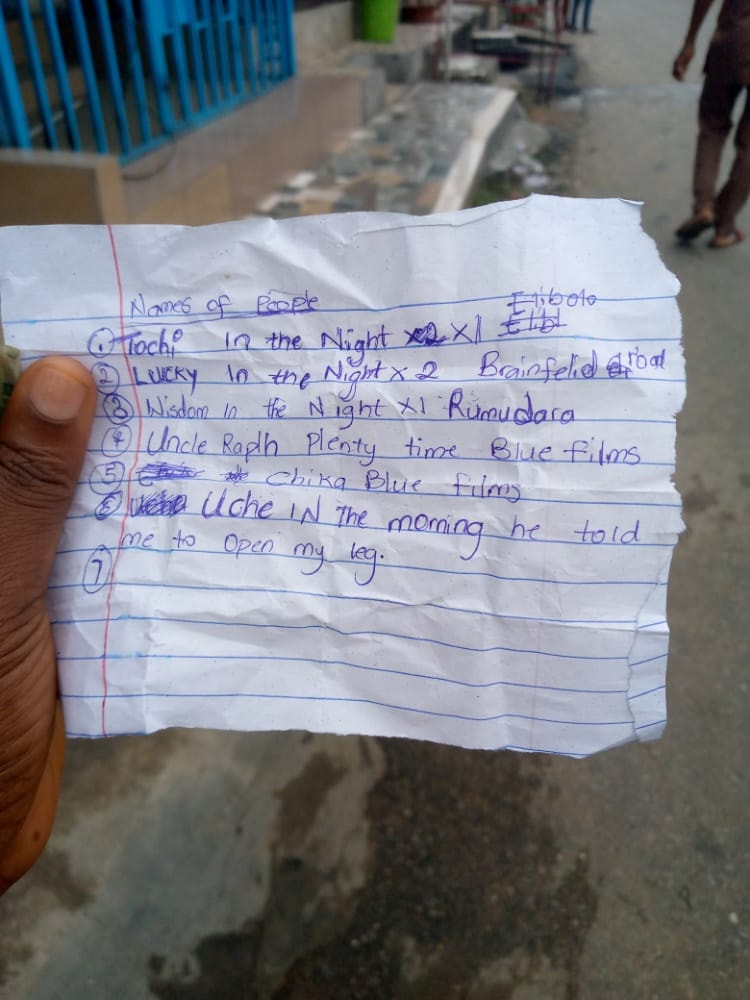 Names of People
Elibolo
① Tochi In the Night x2 x1 Elibl
② Lucky In the Night x 2 Brainfelid road
③ Wisdom in the Night x1 Rumudara
④ Uncle Raplh Plenty time Blue films
⑤ Chika Blue films
⑥ Uche IN The morning he told
me to open my leg.
⑦